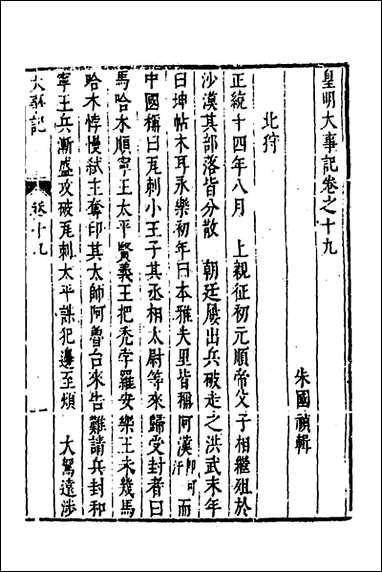 皇明大事記卷之十九
朱國禎輯
北狩
正統十四年八月　上親征初元順帝父子相繼殂於
沙漠其部落皆分散　朝廷屢出兵破走之洪武末年
曰坤帖木耳永樂初年曰本雅夫里皆稱阿漢即可汗而
中國稱曰瓦剌小王子其丞相太尉等來歸受封者曰
馬哈木順寧王太平賢義王把禿孛羅安樂王未幾馬
哈木悖慢弑主奪印其太師阿魯台來告難請兵封和
寧王兵漸盛攻破瓦剌太平諜犯邊至煩　大駕遠涉
大事記
卷十九
一